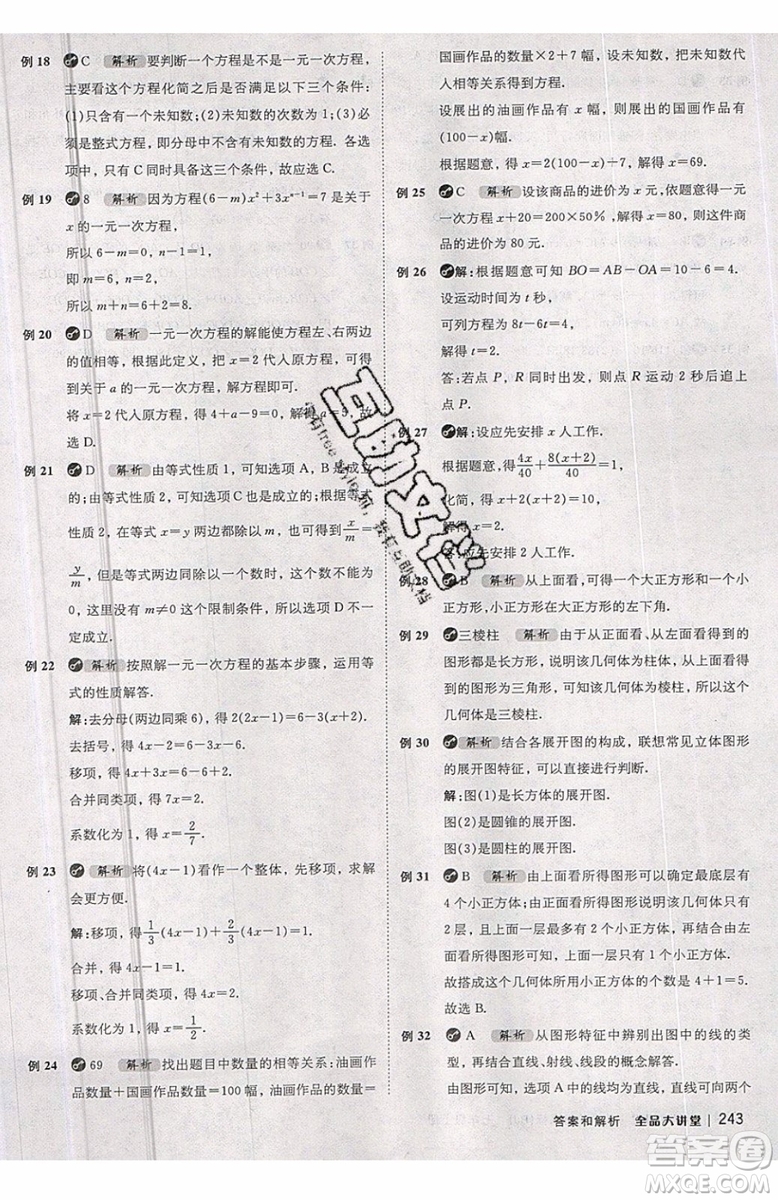 例 18 C 解析 要判断一个方程是不是一元一次方程,
主要看这个方程化简之后是否满足以下三个条件:
(1)只含有一个未知数;(2)未知数的次数为1;(3)必
须是整式方程,即分母中不含有未知数的方程. 各选
项中,只有 C 同时具备这三个条件,故应选 C.
例 19 8 解析 因为方程(6-m)x²+3xⁿ⁻¹=7是关于
x 的一元一次方程,
所以 6-m=0,n-1=1,
即 m=6,n=2,
所以 m+n=6+2=8.
例 20 D 解析 一元一次方程的解能使方程左、右两边
的值相等,根据此定义,把 x=2 代入原方程,可得
到关于 a 的一元一次方程,解方程即可.
把 x=2 代入原方程,得 4+a-9=0,解得 a=5,故
选 D.
例 21 D 解析 由等式性质 1,可知选项 A、B 是成立
的;由等式性质2,可知选项C也是成立的;根据等式
性质 2,在 x=y 两边都除以 m,可得到 x/m=
y/m,但是等式两边同除以一个数时,这个数不能为
0,而这里没有 m≠0 这个限制条件,所以选项 D 不一
定成立.
例 22 解析 按照解一元一次方程的基本步骤,运用等
式的性质解答.
解:去分母(两边同乘 6),得 2(2x-1)=6-3(x-0).
去括号,得 4x-2=6-3x.
移项,得 4x+3x=6+2.
合并同类项,得 7x=2.
系数化为 1,得 x=2/7.
例 23 解析 将(4x-1)看作一个整体,先移项,求解
会更方便.
解:移项,得 1/3(4x-1)+2/3(4x-1)=6+1.
合并,得 4x-1=7.
移项、合并同类项,得 4x=8.
系数化为 1,得 x=2.
例 24 69 解析 找出题目中数量的相等关系:油画作
品数量+国画作品数量=100 幅,油画作品的数量=
国画作品的数量×2+7幅,设未知数,把未知数代
人相等关系得到方程.
设展出的油画作品有 x 幅,则展出的国画作品有
(100-x)幅.
根据题意,得 x=2(100-x)+7,解得 x=69.
例 25 C 解析 设该商品的进价为 x 元,依题意得一元
一次方程 x+20=200×50%,解得 x=80,所以这件商
品的进价为 80 元.
例 26 解:根据题意可知 BO=AB-OA=10-6=4.
设运动时间为 t 秒,
可列方程为 8t-6t=4,
解得 t=2.
答:若点 P,R 同时出发,则点 R 运动 2 秒后追上
点 P.
例 27 解:设应先安排 x 人工作.
根据题意,得 4x/40+8(x+2)/40=1,
化简,得 x+2(x+2)=10,
解得 x=2.
答:应先安排 2 人工作.
例 28 B 解析 从上面看,可得一个大正方形和一个小
正方形,小正方形在大正方形的左下角.
例 29 三棱柱 解析 由于从正面看、从左面看得到的
图形都是长方形,说明该几何体为柱体,从上面看得
到的图形为三角形,所以该几何体为棱柱,所以这个
几何体是三棱柱.
例 30 解析 结合各展开图的构成,联想常见立体图形
的展开图特征,可以直接进行判断.
解:图(1)是长方体的展开图.
图(2)是圆锥的展开图.
图(3)是圆柱的展开图.
例 31 B 解析 由从上面看所得图形可以确定最底层有
4个小正方体,由从正面看所得图形可以确定共有
2层,由从左面看所得图形可以确定上面一层只有1
个小正方体,再结合从上面看所得图形和从正面看
所得图形,可确定上面一层只有一个小正方体.
故搭成这个几何体所用小正方体的个数为 4+1=5.
故选 B.
例 32 A 解析 从图形特征中辨别出图中的线的类
型,再结合直线、射线、线段的概念解答.
由图形可知,选项 A 中的线均为直线,可向两个
答案和解析 全品大讲堂 243
互助文档
答案圈
MXQE.COM